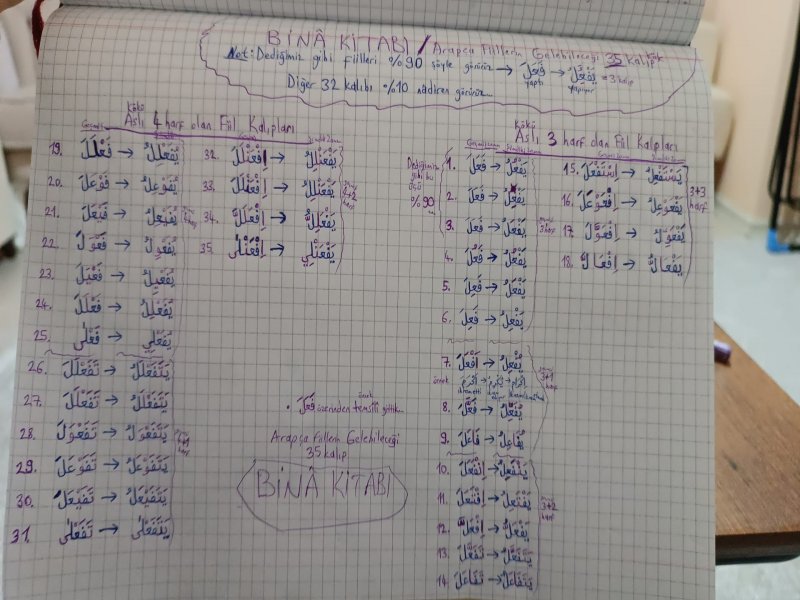 BİNÂ KİTABI / Arapça Fiillerin Gelebileceği 35 Kalıp
Not: Dediğimiz gibi fiilleri %90 şöyle görürüz → فَعَلَ → يَفْعُلُ = 3 kalıp
yaptı yapıyor
Diğer 32 kalıbı %10 nadiren görürüz
Kökü
Aslı 4 harf olan Fiil Kalıpları
19. فَعْلَلَ → يُفَعْلِلُ
20. فَوْعَلَ → يُفَوْعِلُ
21. فَيْعَلَ → يُفَيْعِلُ
22. فَعْوَلَ → يُفَعْوِلُ
23. فَعْيَلَ → يُفَعْيِلُ
24. فَعْلَلَ → يُفَعْلِلُ
25. فَعْلَى → يُفَعْلِي
26. تَفَعْلَلَ → يَتَفَعْلَلُ
27. تَفَعْلَلَ → يَتَفَعْلَلُ
28. تَفَعْوَلَ → يَتَفَعْوَلُ
29. تَفَوْعَلَ → يَتَفَوْعَلُ
30. تَفَيْعَلَ → يَتَفَيْعَلُ
31. تَفَعْلَى → يَتَفَعْلَى
32. اِفْعَنْلَلَ → يَفْعَنْلِلُ
33. اِفْعَنْلَلَ → يَفْعَنْلِلُ
34. اِفْعَلَلَّ → يَفْعَلِلُّ
35. اِفْعَنْلَى → يَفْعَنْلِي
• فَعَلَ üzerinden temsili gittik.
örnek
Arapça Fiillerin Gelebileceği
35 kalıp
BİNÂ KİTABI
Kökü
Aslı 3 harf olan Fiil Kalıpları
Dediğimiz
gibi bu
üçü
%90
1. فَعَلَ → يَفْعُلُ
2. فَعَلَ → يَفْعِلُ
3. فَعَلَ → يَفْعَلُ
4. فَعِلَ → يَفْعَلُ
5. فَعُلَ → يَفْعُلُ
6. فَعِلَ → يَفْعِلُ
3 harf
7. أَفْعَلَ → يُفْعِلُ
örnek
3+1
harf
8. فَعَّلَ → يُفَعِّلُ
9. فَاعَلَ → يُفَاعِلُ
10. اِنْفَعَلَ → يَنْفَعِلُ
11. اِفْتَعَلَ → يَفْتَعِلُ
3+2
harf
12. اِفْعَلَّ → يَفْعَلُّ
13. تَفَعَّلَ → يَتَفَعَّلُ
14. تَفَاعَلَ → يَتَفَاعَلُ
15. اِسْتَفْعَلَ → يَسْتَفْعِلُ
16. اِفْعَوْعَلَ → يَفْعَوْعِلُ
17. اِفْعَوَّلَ → يَفْعَوِّلُ
18. اِفْعَالَّ → يَفْعَالُّ
3+3
harf